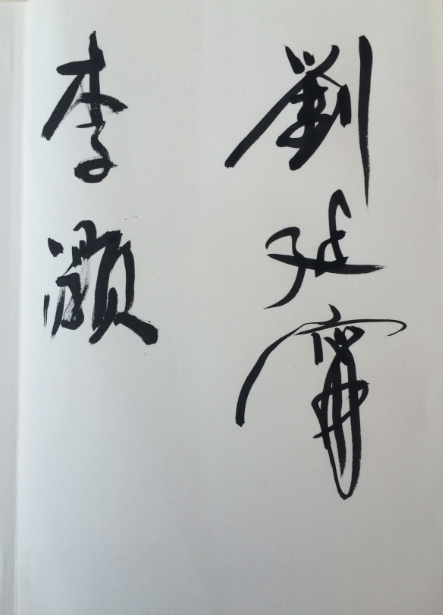 劉延甯
李灝